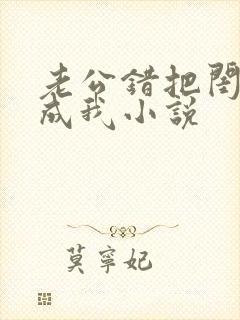 老公错把闺
成我小説
莫寧妃